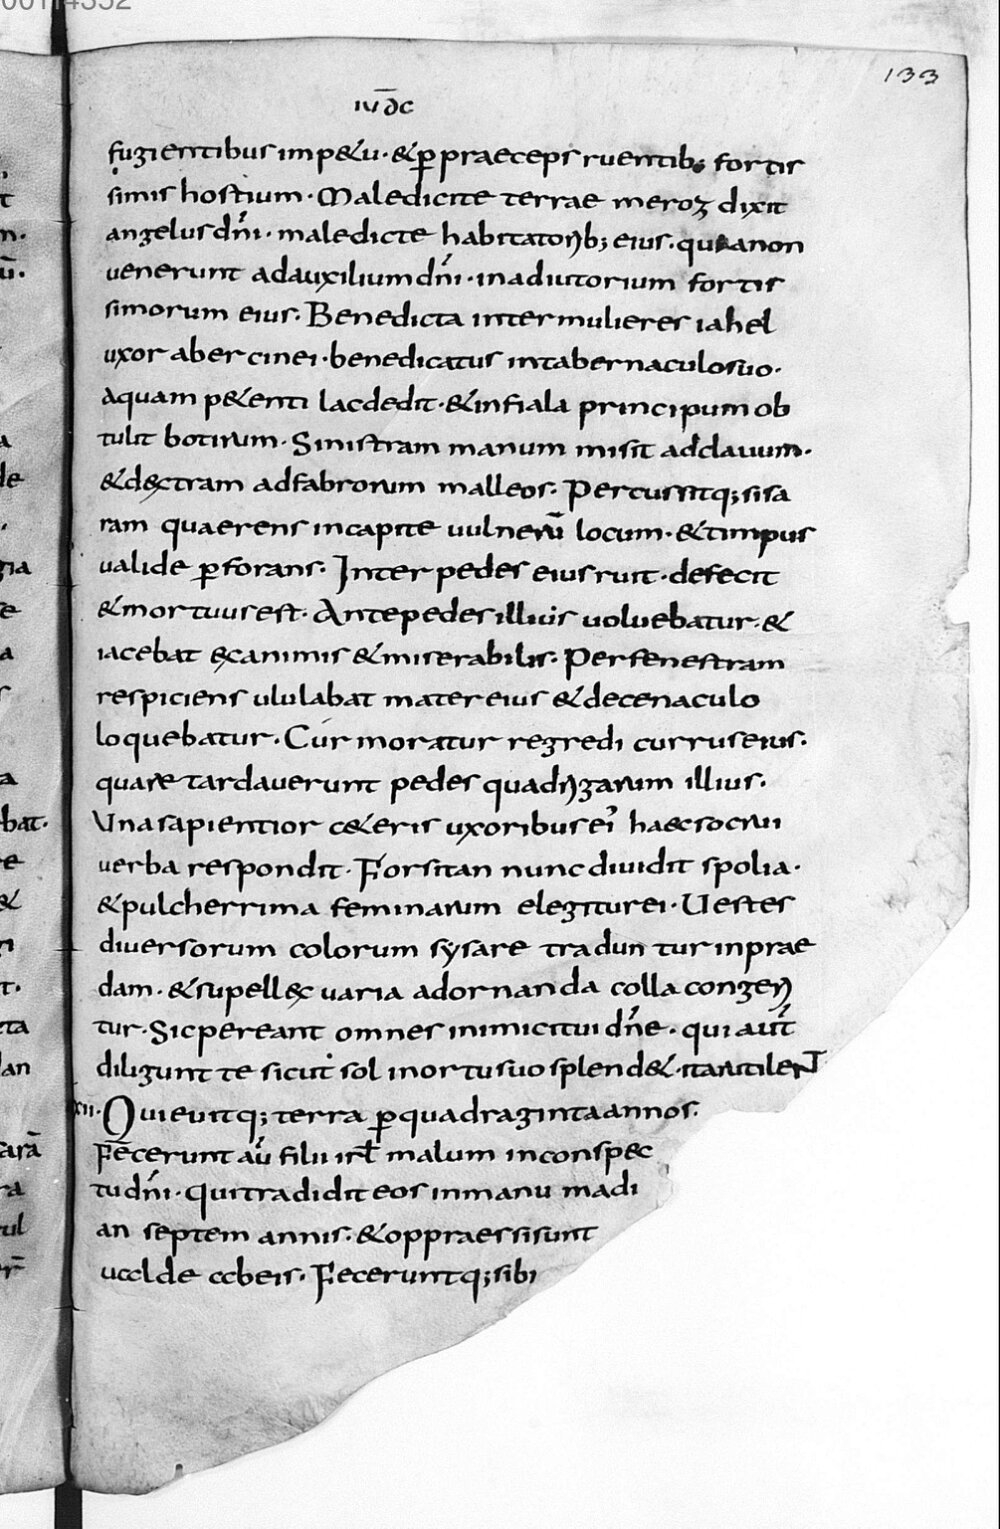 133
iud̄c
fugientibus imp&u· &p̄ praeceps ruentib; fortis
simis hostium· Maledicite terrae meroz dixit
angelus dn̄i· maledicte habitatorib; eius· quia non
uenerunt ad auxilium dn̄i· in adiutorium fortis
simorum eius· Benedicta inter mulieres iahel
uxor aber cinei· benedicatus in tabernaculo suo·
aquam p&enti lac dedit· & in fiala principum ob
tulit botirum· Sinistram manum misit ad clauum·
& dextram ad fabrorum malleos· Percussitq; sisa
ram quaerens in capite uulnerū locum· & timpus
ualide p̄forans· Inter pedes eius ruit· defecit
& mortuus est· Ante pedes illius uoluebatur· &
iacebat exanimis & miserabilis· Per fenestram
respiciens ululabat mater eius & de cenaculo
loquebatur· Cur moratur regredi currus eius·
quare tardauerunt pedes quadrigarum illius·
Una sapientior c&eris uxoribus ei' haec socrui
uerba respondit· Forsitan nunc diuidit spolia·
& pulcherrima feminarum elegitur ei· Uestes
diuersorum colorum sysare traduntur in prae
dam· & supellex uaria ad ornanda colla congeri
tur· Sic pereant omnes inimici tui dn̄e· qui aut̄
diligunt te sicut sol in ortu suo splend& ita rutilent
xii· Quieuitq; terra p̄ quadraginta annos·
Fēcerunt aū filii isrl̄ malum in conspec
tu dn̄i· qui tradidit eos in manu madi
an septem annis· & oppraessi sunt
ualde ab eis· Feceruntq; sibi